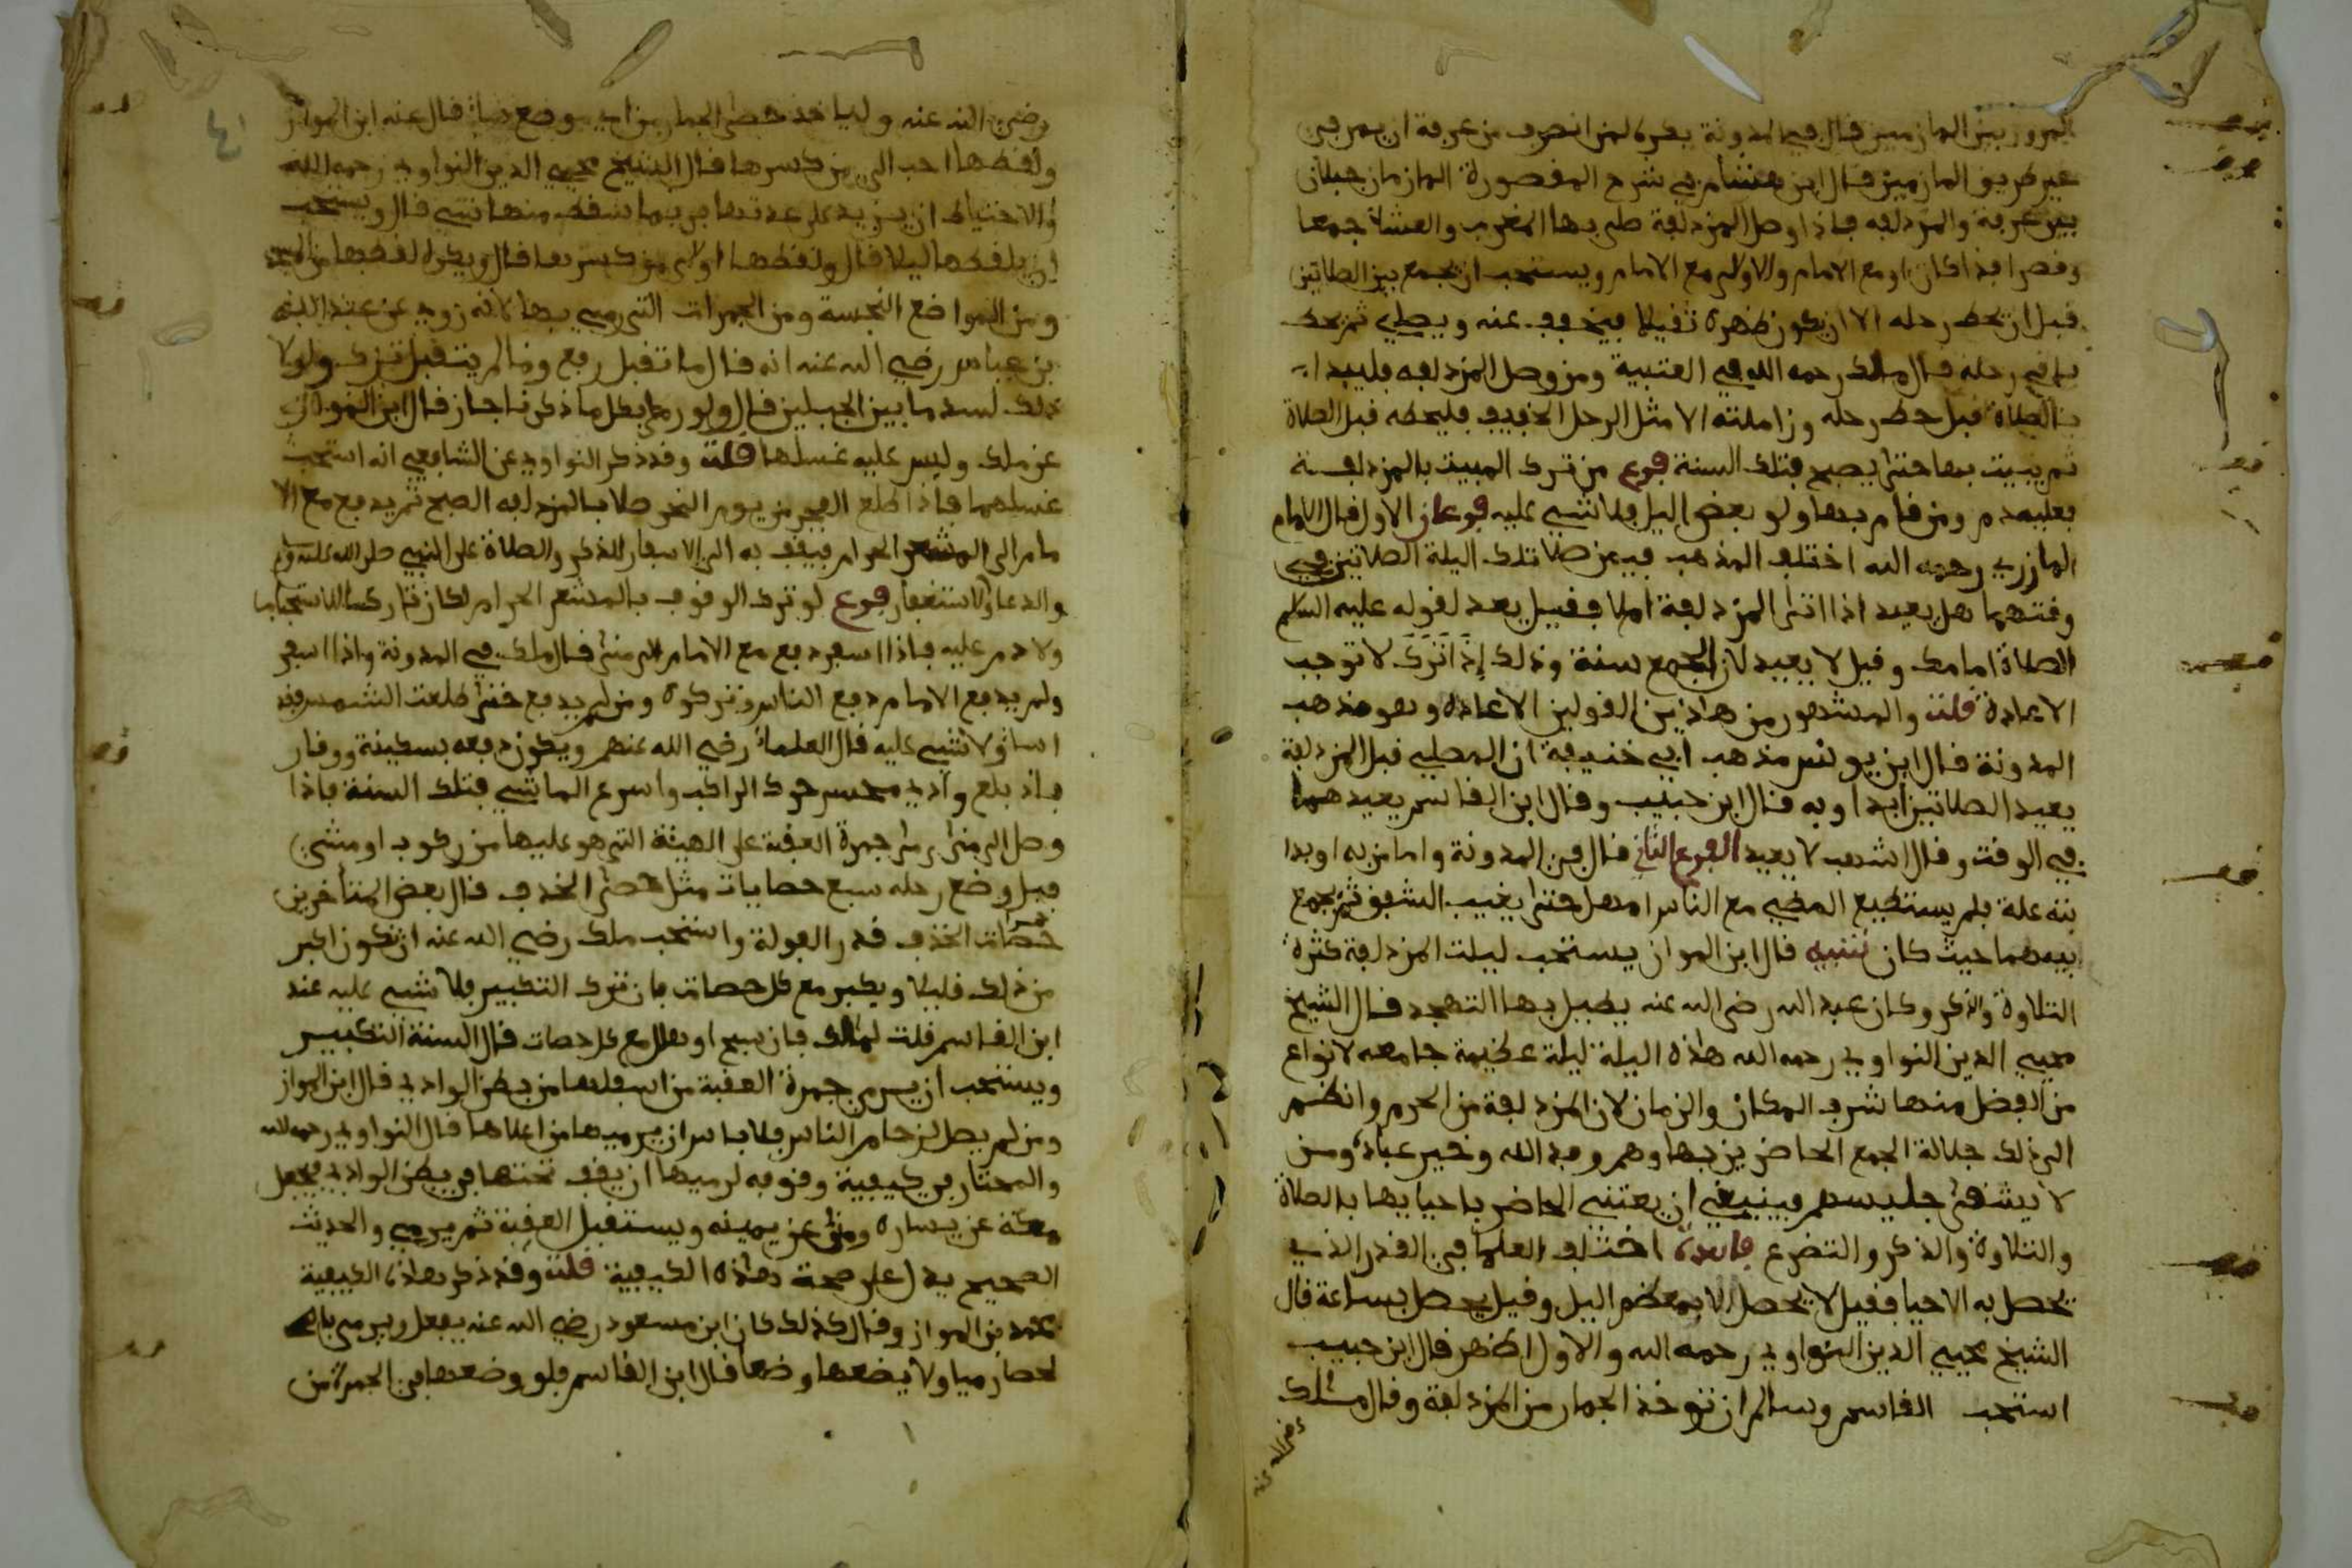 المرور بين المازمين قال في المدونة يكره لمن انصرف من عرفة ان يمر في
غير طريق المازمين قال ابن هشام في شرح المقصورة المازمان جبلان
بين عرفة والمزدلفه فاذا وصل المزدلفة صلى بها المغرب والعشاء جمعا
وقصرا مع الامام والاولى مع الامام ويستحب ان يجمع بين الصلاتين
قبل ان يحط رحله الا ان يكون ظهره ثقيلا فيخفف عنه ويصلي ثم يحط
باقي رحله قال مالك رحمه الله في العتبية ومن وصل المزدلفه فليبدا
بالصلاة قبل حط رحله وزاملته الا مثل الرحل الخفيف فليحطه قبل الصلاة
ثم يبيت بها حتى يصبح فتلك السنة فرع من ترك المبيت بالمزدلفة
فعليه دم ومن قام بها ولو بعض اليل فلا شيء عليه فرعان الاول قال الامام
المازري رحمه الله اختلف المذهب فيمن صلا تلك اليلة الصلاتين في
وقتهما هل يعيد اذا اتى المزدلفة ام لا فقيل يعد لقوله عليه السلم
الصلاة امامك وقيل لا يعيد لان الجمع سنة وذلك إذا ترك لا توجب
الاعادة قلت والمشهور من هاذين القولين الاعاده وهو مذهب
المدونة قال ابن يونس مذهب ابي حنيفة ان المصلي قبل المزدلفة
يعيد الصلاتين ابدا وبه قال ابن حبيب وقال ابن القاسم يعيدهما
في الوقت وقال اشهب لا يعيد الفرع الثاني قال في المدونة واما من به او بدا
بته علة فلم يستطيع المضي مع الناس امهل حتى يغيب الشفق ثم يجمع
بينهما حيث كان تنبيه قال ابن المواز يستحب ليلت المزدلفة كثرة
التلاوة والذكر وكان عبد الله رضي الله عنه يطيل بها التهجد قال الشيخ
محيي الدين النواوي رحمه الله هاذه اليلة ليلة عظيمة جامعه لانواع
من الفضل منها شرف المكان والزمان لان المزدلفة من الحرم وانضم
الى ذلك جلالة الجمع الحاضرين بها وهم وفد الله وخير عباده ومن
لا يشقى جليسهم فينبغي ان يعتني الحاضر باحيايها بالصلاة
والتلاوة والذكر والتضرع فايدة اختلف العلما في القدر الذي
يحصل به الاحيا فقيل لا يحصل الا بمعظم اليل وقيل يحصل بساعة قال
الشيخ محيي الدين النواوي رحمه الله والاول اظهر قال ابن حبيب
استحب القاسم وسالم ان توخذ الجمار من المزدلفة وقال ملك
رضي الله عنه
رضي الله عنه ولياخذ حصى الجمار من اي موضع شاء قال عنه ابن المواز
ولقطها احب الي من كسرها قال الشيخ محيي الدين النواوي رحمه الله
والاحتياط ان يزيد على عدتها فربما سقط منها شيء قال ويستحب
ان يلقطها ليلا قال ولقطها اولى من كسرها قال ويكره لقطها من المسجد
ومن المواضع النجسة ومن الجمرات التي رمي بها لانه روي عن عبد الله
بن عباس رضي الله عنه انه قال ما تقبل رفع وما لم يتقبل ترك ولولا
ذلك لسد ما بين الجبلين قال ولو رمى بكل ما ذكرنا جاز قال ابن المواز
عن ملك وليس عليه غسلها قلت وقد ذكر النواوي عن الشافعي انه استحب
غسلهما فاذا طلع الفجر من يوم النحر صلا بالمزدلفه الصبح ثم يدفع مع الا
مام الى المشعر الحرام فيقف به الى الاسفار للذكر والصلاة على النبي صلى الله عليه وسلم
والدعا والاستغفار فرع لو ترك الوقوف بالمشعر الحرام لكان تاركا للاستحباب
ولا دم عليه فاذا اسفر دفع مع الامام الى منى قال ملك في المدونة واذا اسفر
ولم يدفع الامام دفع الناس وتركوه ومن لم يدفع حتى طلعت الشمس فقد
اسا ولا شيء عليه قال العلماء رضي الله عنهم ويكون دفعه بسكينة ووقار
فاذ بلغ وادي محسر حرك الراكب واسرع الماشي فتلك السنة فاذا
وصل الى منى رمى جمرة العقبة على الهيئة التي هو عليها من ركوب او مشي
قبل وضع رحله سبع حصايات مثل حصى الخذف قال بعض المتأخرين
حصات الخذف قدر الفولة واستحب ملك رضي الله عنه ان تكون اكبر
من ذلك قليلا ويكبر مع كل حصات فان ترك التكبير فلا شيء عليه عند
ابن القاسم قلت لمالك فان سبح او هلل مع كل حصات قال السنة التكبير
ويستحب ان يرمي جمرة العقبة من اسفلها من بطن الوادي قال ابن المواز
ومن لم يصل لزحام الناس فلا باس ان يرميها من اعلاها قال النواوي رحمه الله
والمختار في كيفية وقوفه لرميها ان يقف تحتها في بطن الوادي فيجعل
مكة عن يساره ومنى عن يمينه ويستقبل العقبة ثم يرمي والحديث
الصحيح يدل على صحة هاذه الكيفية قلت وقد ذكر هاذه الكيفية
محمد بن المواز وقال كذلك كان ابن مسعود رضي الله عنه يفعل ويرمي بالـ
لحصا رميا ولا يضعها وضعا قال ابن القاسم فلو وضعها في الجمرة من